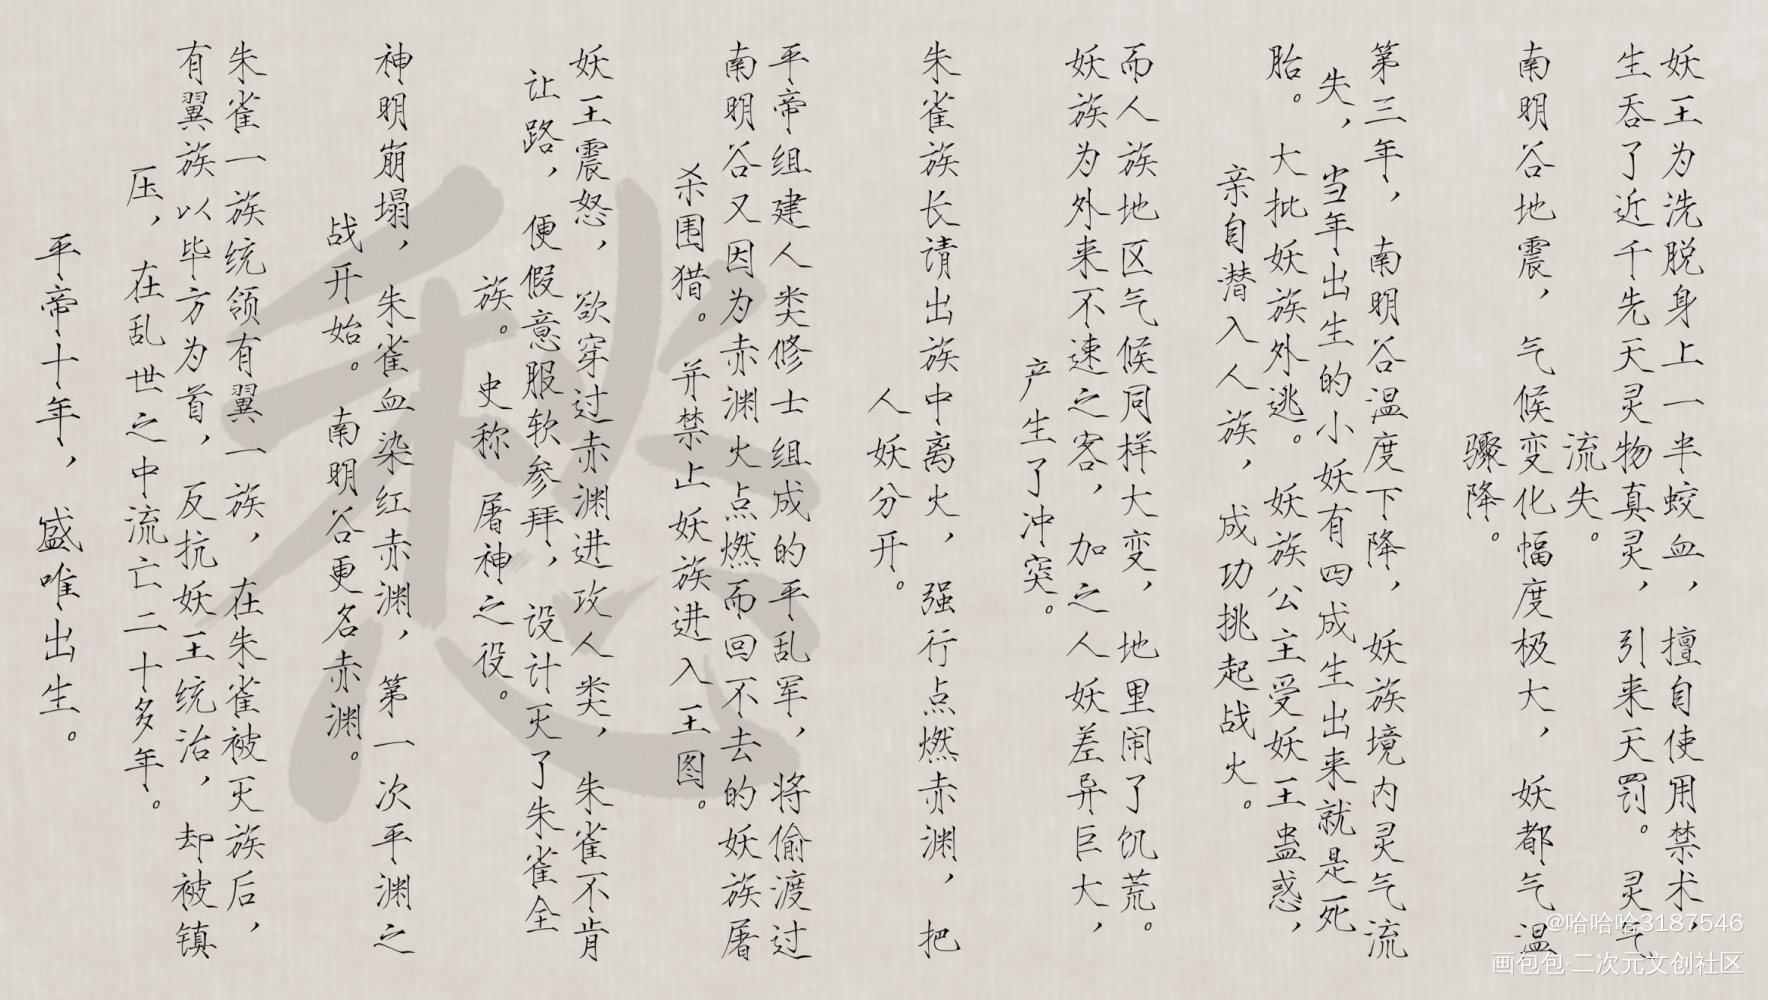 妖王为洗脱身上一半蛟血，擅自使用禁术，
生吞了近千先天灵物真灵，引来天罚。灵气
流失。
南明谷地震，气候变化幅度极大，妖都气温
骤降。
第三年，南明谷温度下降，妖族境内灵气流
失，当年出生的小妖有四成生出来就是死
胎。大批妖族外逃。妖族公主受妖王蛊惑，
亲自潜入人族，成功挑起战火。
而人族地区气候同样大变，地里闹了饥荒。
妖族为外来不速之客，加之人妖差异巨大，
产生了冲突。
朱雀族长请出族中离火，强行点燃赤渊，把
人妖分开。
平帝组建人类修士组成的平乱军，将偷渡过
南明谷又因为赤渊火点燃而回不去的妖族屠
杀围猎。并禁止妖族进入王图。
妖王震怒，欲穿过赤渊进攻人类，朱雀不肯
让路，便假意服软参拜，设计灭了朱雀全
族。史称 屠神之役。
神明崩塌，朱雀血染红赤渊，第一次平渊之
战开始。南明谷更名赤渊。
朱雀一族统领有翼一族，在朱雀被灭族后，
有翼族以毕方为首，反抗妖王统治，却被镇
压，在乱世之中流亡二十多年。
平帝十年，盛唯出生。
愁
@哈哈哈3187546
画包包·二次元文创社区